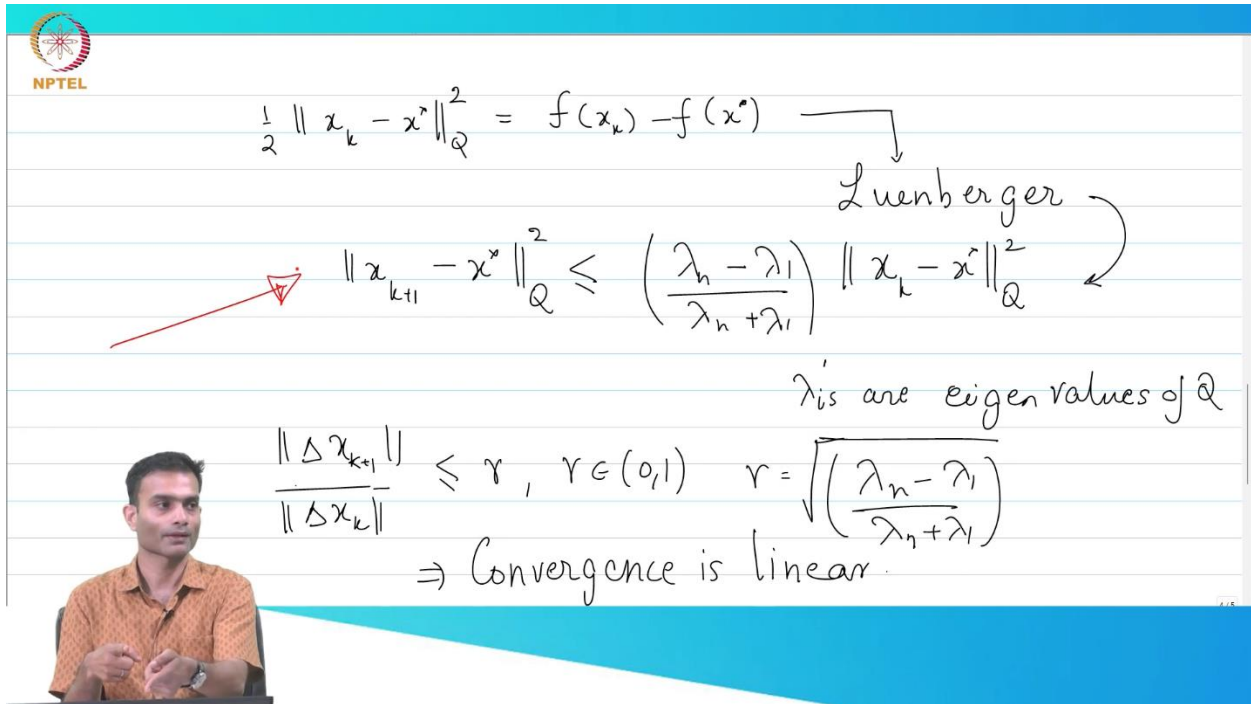 NPTEL
½ ‖ x_k − x* ‖²_Q = f(x_k) − f(x*)
Luenberger
‖ x_{k+1} − x* ‖²_Q ≤ ( (λ_n − λ_1) / (λ_n + λ_1) ) ‖ x_k − x* ‖²_Q
λ_i's are eigen values of Q
‖ Δx_{k+1} ‖ / ‖ Δx_k ‖ ≤ r, r ∈ (0,1) r = √( (λ_n − λ_1) / (λ_n + λ_1) )
⇒ Convergence is linear.
4/5